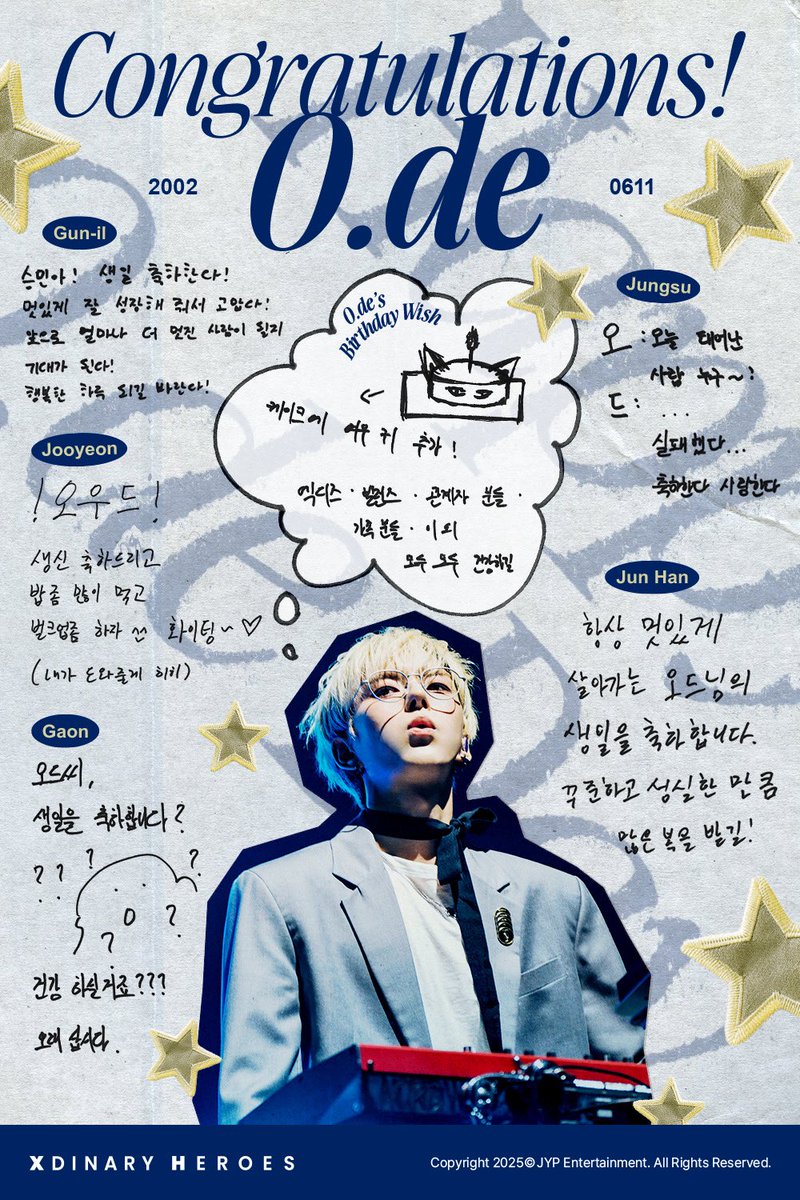 Congratulations!
O.de
2002
0611
Gun-il
승민아! 생일 축하한다!
멋있게 잘 성장해 줘서 고맙다!
앞으로 얼마나 더 멋진 사람이 될지
기대가 된다!
행복한 하루 되길 바란다!
Jooyeon
! 오우드 !
생신 축하드리고
밥좀 많이 먹고
벌크업좀 하자 화이팅~ ♡
(내가 도와줄게 히히)
Gaon
오드씨,
생일을 축하합니다?
? ? ? ?
? ?
건강 하실거죠???
오래 삽시다.
O.de's
Birthday Wish
←
케이크에 여우 귀 추가!
엑디즈 · 빌런즈 · 관계자 분들 ·
가족 분들 · 이 외
모두 모두 건강하길
Jungsu
오 : 오늘 태어난
사람 누구~?
드 : ...
실패했다...
축하한다 사랑한다
Jun Han
항상 멋있게
살아가는 오드님의
생일을 축하합니다.
꾸준하고 성실한 만큼
많은 복을 받길!
XDINARY HEROES
Copyright 2025© JYP Entertainment. All Rights Reserved.